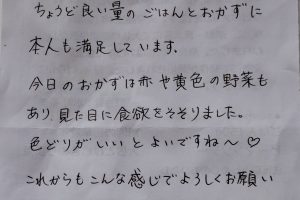 ちょうど良い量の ごはんとおかずに
本人も満足しています。
今日のおかずは赤や黄色の野菜も
あり、見た目に食欲をそそりました。
色どりがいいとよいですね〜♡
これからもこんな感じでよろしくお願い